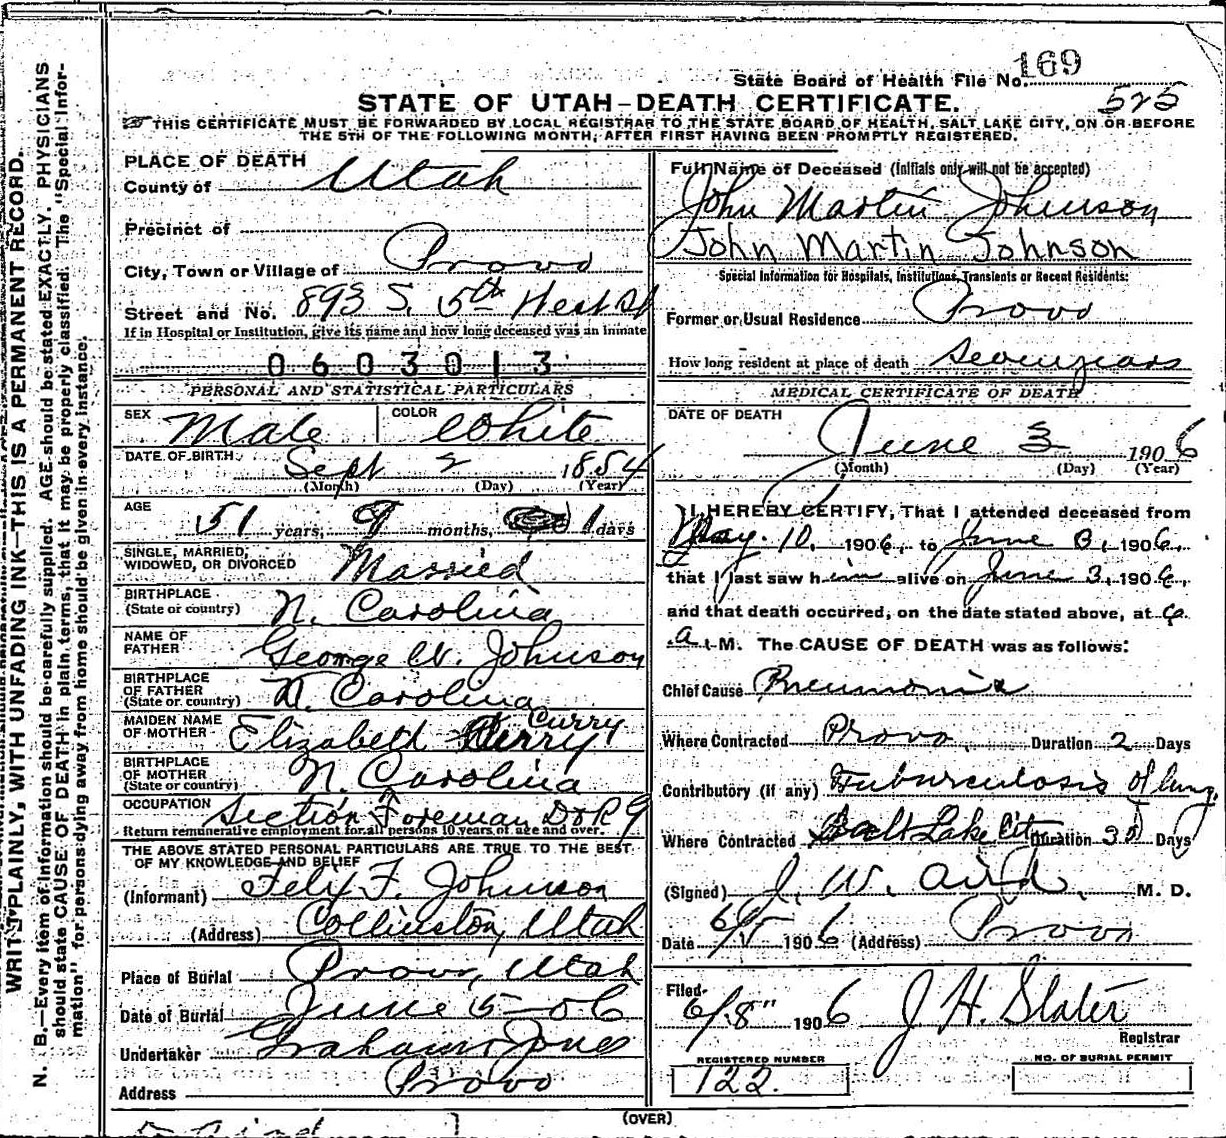 WRITE PLAINLY, WITH UNFADING INK—THIS IS A PERMANENT RECORD.
N. B.—Every item of information should be carefully supplied. AGE should be stated EXACTLY. PHYSICIANS
should state CAUSE OF DEATH in plain terms, that it may be properly classified. The "Special Infor-
mation" for persons dying away from home should be given in every instance.
State Board of Health File No. 169
525
STATE OF UTAH—DEATH CERTIFICATE.
THIS CERTIFICATE MUST BE FORWARDED BY LOCAL REGISTRAR TO THE STATE BOARD OF HEALTH, SALT LAKE CITY, ON OR BEFORE
THE 5TH OF THE FOLLOWING MONTH, AFTER FIRST HAVING BEEN PROMPTLY REGISTERED.
PLACE OF DEATH
County of Utah
Precinct of
City, Town or Village of Provo
Street and No. 893 S. 5th West St
If in Hospital or Institution, give its name and how long deceased was an inmate
0603013
PERSONAL AND STATISTICAL PARTICULARS
SEX Male COLOR White
DATE OF BIRTH Sept 2 1854
(Month) (Day) (Year)
AGE 51 years, 9 months, 1 days
SINGLE, MARRIED,
WIDOWED, OR DIVORCED Married
BIRTHPLACE
(State or country) N. Carolina
NAME OF
FATHER George W. Johnson
BIRTHPLACE
OF FATHER
(State or country) N. Carolina
MAIDEN NAME
OF MOTHER Elizabeth Curry
BIRTHPLACE
OF MOTHER
(State or country) N. Carolina
OCCUPATION Section Foreman D&RG
Return remunerative employment for all persons 10 years of age and over.
THE ABOVE STATED PERSONAL PARTICULARS ARE TRUE TO THE BEST
OF MY KNOWLEDGE AND BELIEF
(Informant) Felix F. Johnson
(Address) Collinston, Utah
Place of Burial Provo, Utah
Date of Burial June 5-06
Undertaker Graham & Jones
Address Provo
Full Name of Deceased (Initials only will not be accepted)
John Martin Johnson
John Martin Johnson
Special Information for Hospitals, Institutions, Transients or Recent Residents:
Former or Usual Residence Provo
How long resident at place of death Seven years
MEDICAL CERTIFICATE OF DEATH
DATE OF DEATH
June 3 1906
(Month) (Day) (Year)
I HEREBY CERTIFY, That I attended deceased from
May. 10, 1906, to June 3, 1906,
that I last saw him alive on June 3, 1906,
and that death occurred, on the date stated above, at
a. M. The CAUSE OF DEATH was as follows:
Chief Cause Pneumonia
Where Contracted Provo Duration 2 Days
Contributory (if any) Tuburculosis of lung
Where Contracted Salt Lake City Duration 30 Days
(Signed) J. W. Aird, M. D.
Date 6/5 1906 (Address) Provo
Filed 6/8" 1906 J H. Slater
Registrar
REGISTERED NUMBER
122.
NO. OF BURIAL PERMIT
(OVER)